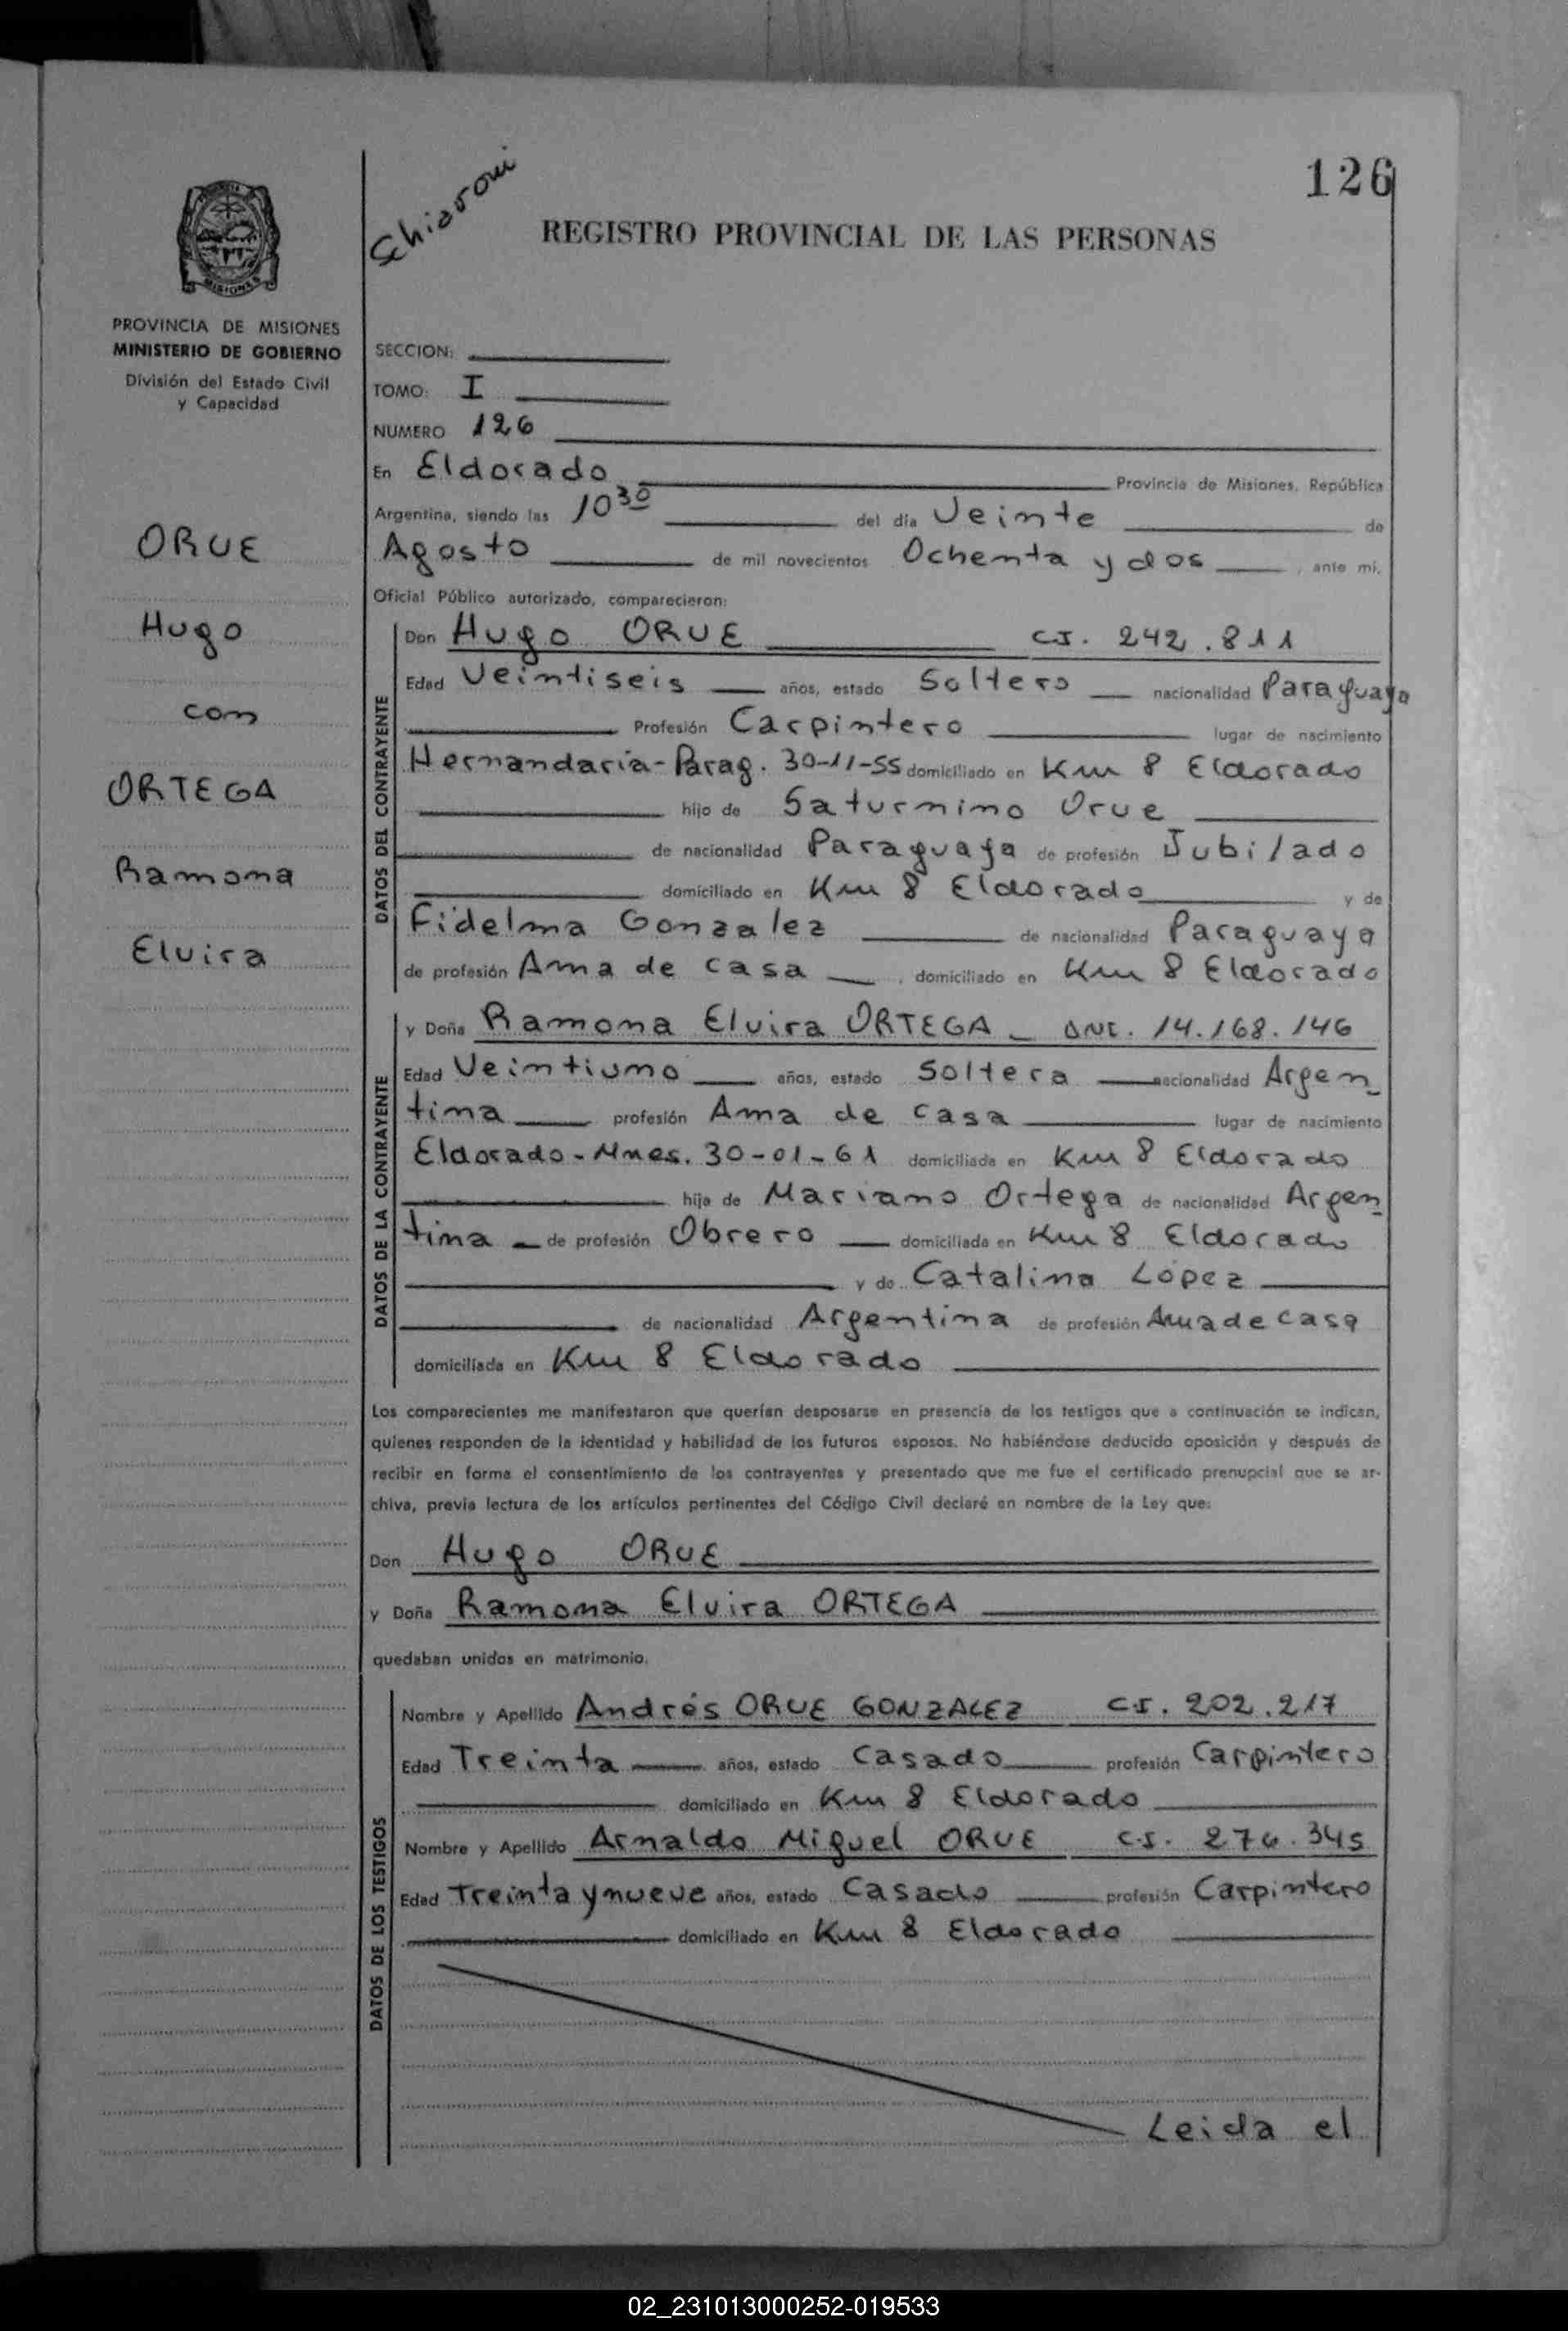 126
Schiaroni
REGISTRO PROVINCIAL DE LAS PERSONAS
MISIONES
PROVINCIA DE MISIONES
MINISTERIO DE GOBIERNO
División del Estado Civil
y Capacidad
ORUE
Hugo
con
ORTEGA
Ramona
Elvira
SECCION:
TOMO: I
NUMERO 126
En Eldorado Provincia de Misiones, República
Argentina, siendo las 10 30 del día Veinte de
Agosto de mil novecientos Ochenta y dos, ante mí,
Oficial Público autorizado, comparecieron:
DATOS DEL CONTRAYENTE
Don Hugo ORUE C.I. 242.811
Edad Veintiseis años, estado Soltero nacionalidad Paraguaya
Profesión Carpintero lugar de nacimiento
Hernandaria-Parag. 30-11-55 domiciliado en Km 8 Eldorado
hijo de Saturnino Orue
de nacionalidad Paraguaya de profesión Jubilado
domiciliado en Km 8 Eldorado y de
Fidelma Gonzalez de nacionalidad Paraguaya
de profesión Ama de casa, domiciliado en Km 8 Eldorado
DATOS DE LA CONTRAYENTE
y Doña Ramona Elvira ORTEGA - DNI. 14.168.146
Edad Veintiuno años, estado Soltera nacionalidad Argen
tina profesión Ama de casa lugar de nacimiento
Eldorado-Mnes. 30-01-61 domiciliada en Km 8 Eldorado
hija de Mariano Ortega de nacionalidad Argen
tina de profesión Obrero domiciliada en Km 8 Eldorado
y de Catalina López
de nacionalidad Argentina de profesión Ama de casa
domiciliada en Km 8 Eldorado
Los comparecientes me manifestaron que querían desposarse en presencia de los testigos que a continuación se indican,
quienes responden de la identidad y habilidad de los futuros esposos. No habiéndose deducido oposición y después de
recibir en forma el consentimiento de los contrayentes y presentado que me fue el certificado prenupcial que se ar-
chiva, previa lectura de los artículos pertinentes del Código Civil declaré en nombre de la Ley que:
Don Hugo ORUE
y Doña Ramona Elvira ORTEGA
quedaban unidos en matrimonio.
DATOS DE LOS TESTIGOS
Nombre y Apellido Andrés ORUE GONZALEZ C.I. 202.217
Edad Treinta años, estado Casado profesión Carpintero
domiciliado en Km 8 Eldorado
Nombre y Apellido Arnaldo Miguel ORUE C.I. 276.345
Edad Treinta y nueve años, estado Casado profesión Carpintero
domiciliado en Km 8 Eldorado
Leida el
02_231013000252-019533